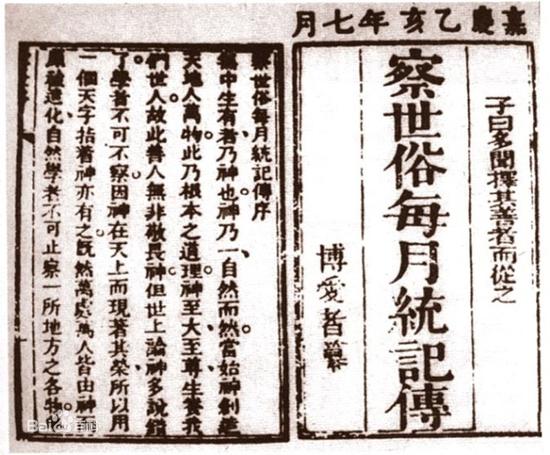 嘉慶乙亥年七月
子曰多聞擇其善者而從之
察世俗每月統記傳
博愛者纂
察世俗每月統記傳序
無中生有者乃神也神乃一自然而然當始神創造
天地人萬物此乃根本之道理神至大至尊生養我
們世人故此善人無非敬畏神但世上論神多說錯
了學者不可不察因神在天上而現著其榮所以用
一個天字指著神亦有之既然萬處萬人皆由神而
原被造化自然學者不可止察一所地方之各物
Bai百科